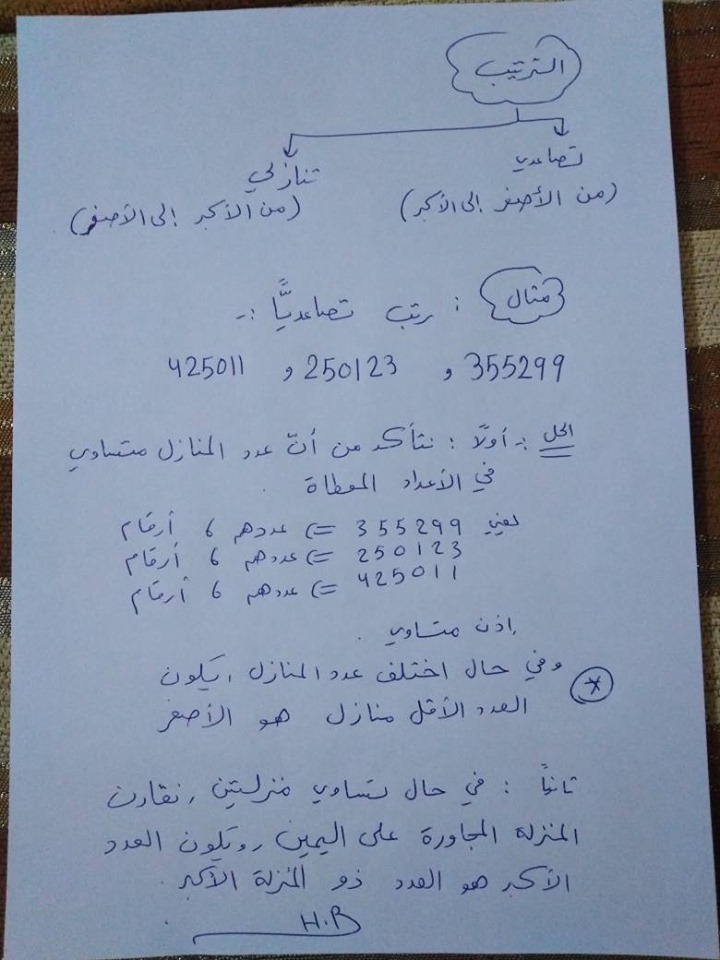 الترتيب
تصاعدي تنازلي
(من الأصغر إلى الأكبر) (من الأكبر إلى الأصغر)
مثال : رتب تصاعديًّا :-
355299 و 250123 و 425011
الحل :- أولًا : نتأكد من أنّ عدد المنازل متساوي
في الأعداد المعطاة .
يعني 355299 => عددهم 6 أرقام
250123 => عددهم 6 أرقام
425011 => عددهم 6 أرقام
إذن متساوي .
* وفي حال اختلف عدد المنازل ، يكون
العدد الأقل منازل هو الأصغر
ثانيًا : في حال تساوي منزلتين ، نقارن
المنزلة المجاورة على اليمين ، ويكون العدد
الأكبر هو العدد ذو المنزلة الأكبر .
H.B